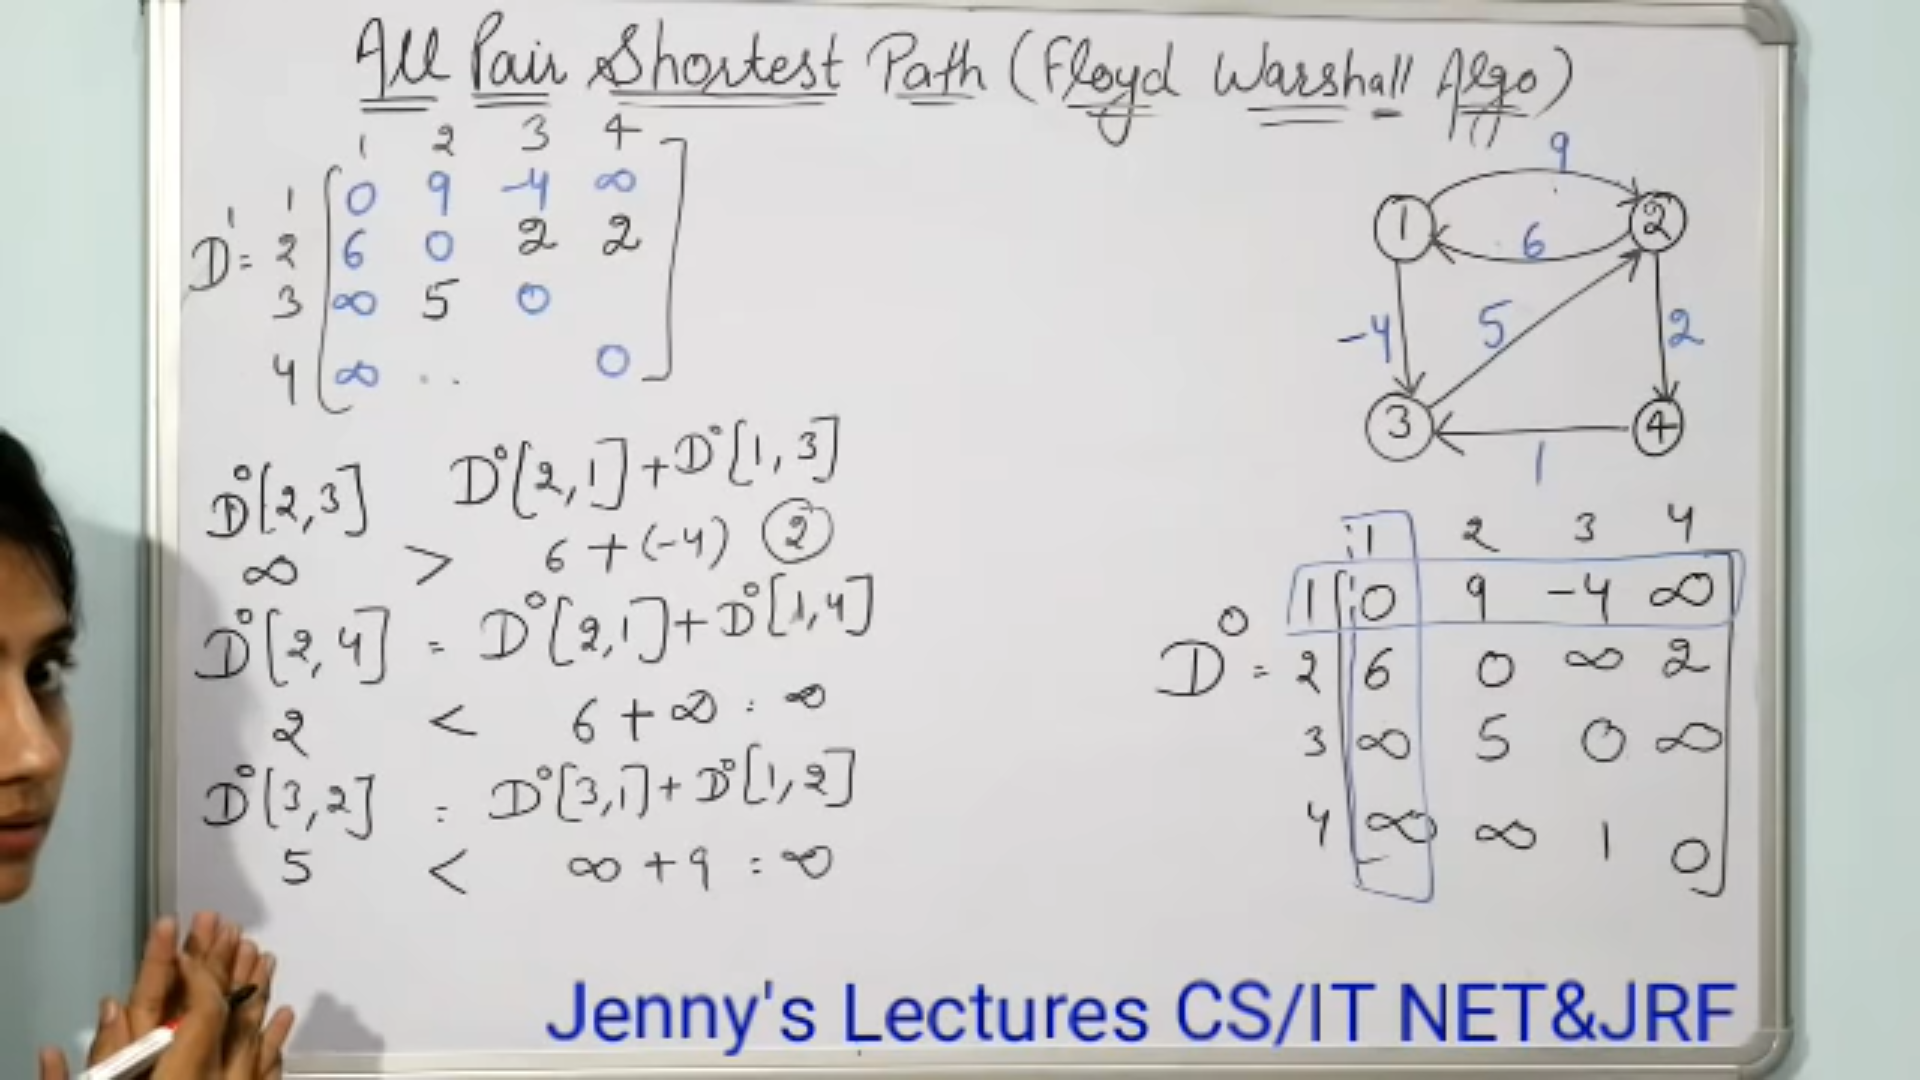 All Pair Shortest Path (Floyd Warshall Algo)
1 2 3 4
1 0 9 -4 ∞
D¹ = 2 6 0 2 2
3 ∞ 5 0
4 ∞ .. 0
D⁰[2,3] D⁰[2,1]+D⁰[1,3]
∞ > 6+(-4) 2
D⁰[2,4] = D⁰[2,1]+D⁰[1,4]
2 < 6+∞ = ∞
D⁰[3,2] = D⁰[3,1]+D⁰[1,2]
5 < ∞+9 = ∞
9
1 2
6
-4 5 2
3 4
1
1 2 3 4
1 0 9 -4 ∞
D⁰ = 2 6 0 ∞ 2
3 ∞ 5 0 ∞
4 ∞ ∞ 1 0
Jenny's Lectures CS/IT NET&JRF